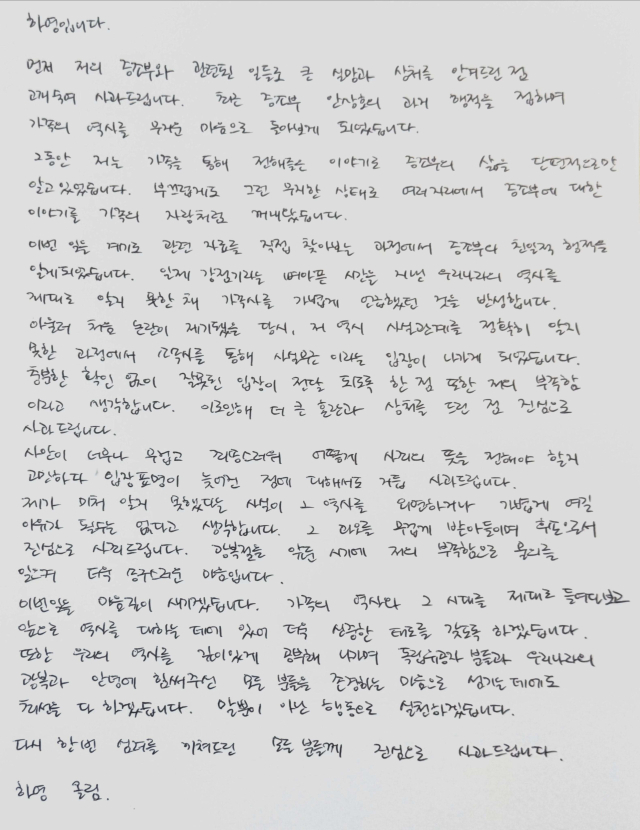 하영입니다.
먼저 저의 증조부와 관련된 일들로 큰 실망과 상처를 안겨드린 점
고개숙여 사과드립니다. 최근 증조부 안상호의 과거 행적을 접하며
가족의 역사를 무거운 마음으로 돌아보게 되었습니다.
그동안 저는 가족을 통해 전해들은 이야기로 증조부의 삶을 단편적으로만
알고있었습니다. 부끄럽게도 그런 무지한 상태로 여러자리에서 증조부에 대한
이야기를 가족의 자랑처럼 꺼내왔습니다.
이번 일을 계기로 관련 자료를 직접 찾아보는 과정에서 증조부의 친일적 행적을
알게되었습니다. 일제 강점기라는 뼈아픈 시간을 지난 우리나라의 역사를
제대로 알지 못한 채 가족사를 가볍게 언급했던 것을 반성합니다.
아울러 처음 논란이 제기됐을 당시, 저 역시 사실관계를 정확히 알지
못한 과정에서 소속사를 통해 사실무근 이라는 입장이 나가게 되었습니다.
충분한 확인 없이 잘못된 입장이 전달 되도록 한 점 또한 저의 부족함
이라고 생각합니다. 이로인해 더 큰 혼란과 상처를 드린 점 진심으로
사과드립니다.
사안이 너무나 무겁고 죄송스러워 어떻게 사죄의 뜻을 전해야 할지
고민하다 입장표명이 늦어진 점에 대해서도 거듭 사과드립니다.
제가 미처 알지 못했다는 사실이 그 역사를 외면하거나 가볍게 여길
이유가 될수는 없다고 생각합니다. 그 과오를 무겁게 받아들이며 후손으로서
진심으로 사죄드립니다. 광복절을 앞둔 시기에 저의 부족함으로 물의를
일으켜 더욱 송구스러운 마음입니다.
이번일을 마음깊이 새기겠습니다. 가족의 역사와 그 시대를 제대로 들여다보고
앞으로 역사를 대하는 데에 있어 더욱 신중한 태도를 갖도록 하겠습니다.
또한 우리의 역사를 깊이있게 공부해 나가며 독립유공자 분들과 우리나라의
광복과 안녕에 힘써주신 모든 분들을 존경하는 마음으로 섬기는데에도
최선을 다 하겠습니다. 말뿐이 아닌 행동으로 실천하겠습니다.
다시 한번 심려를 끼쳐드린 모든 분들께 진심으로 사과드립니다.
하영 올림.